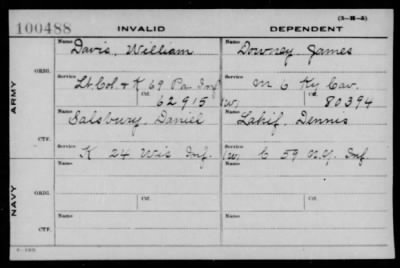 (3-H-A)
100488 INVALID DEPENDENT
Name Davis, William Name Downey James
ORIG.
Service Lt. Col & K 69 Pa Inf Service M 6 Ky Cav.
Ctf. 62915 (W) Ctf. 80394
ARMY
Name Salsbury, Daniel Name Lahif, Dennis
CTF.
Service K 24 Wis Inf. (W) Service C 59 N.Y. Inf.
Ctf. Ctf.
Name Name
ORIG.
Service Service
Ctf. Ctf.
NAVY
Name Name
CTF.